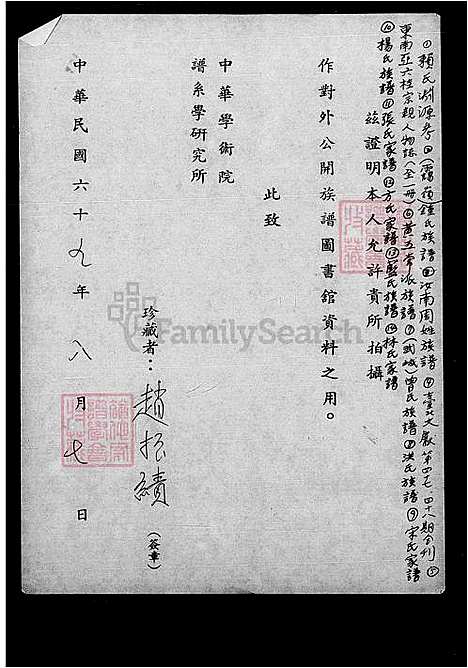 ①賴氏淵源考②(霞葙)鍾氏族譜③汝南周姓族譜④臺北文獻第四七.四十八期合刊⑤
東南亞六桂宗親人物誌(全一冊)⑥黃五常派族譜⑦(武城)曾氏族譜⑧洪氏族譜⑨宋氏家譜
⑩楊氏族譜⑪張氏家譜⑫方氏家譜⑬藍氏族譜⑭林氏家譜
茲證明本人允許貴所拍攝
作對外公開族譜圖書館資料之用。
此致
中華學術院
譜系學研究所
珍藏者：趙振績(簽章)
中華民國六十九年八月七日
FamilySearch